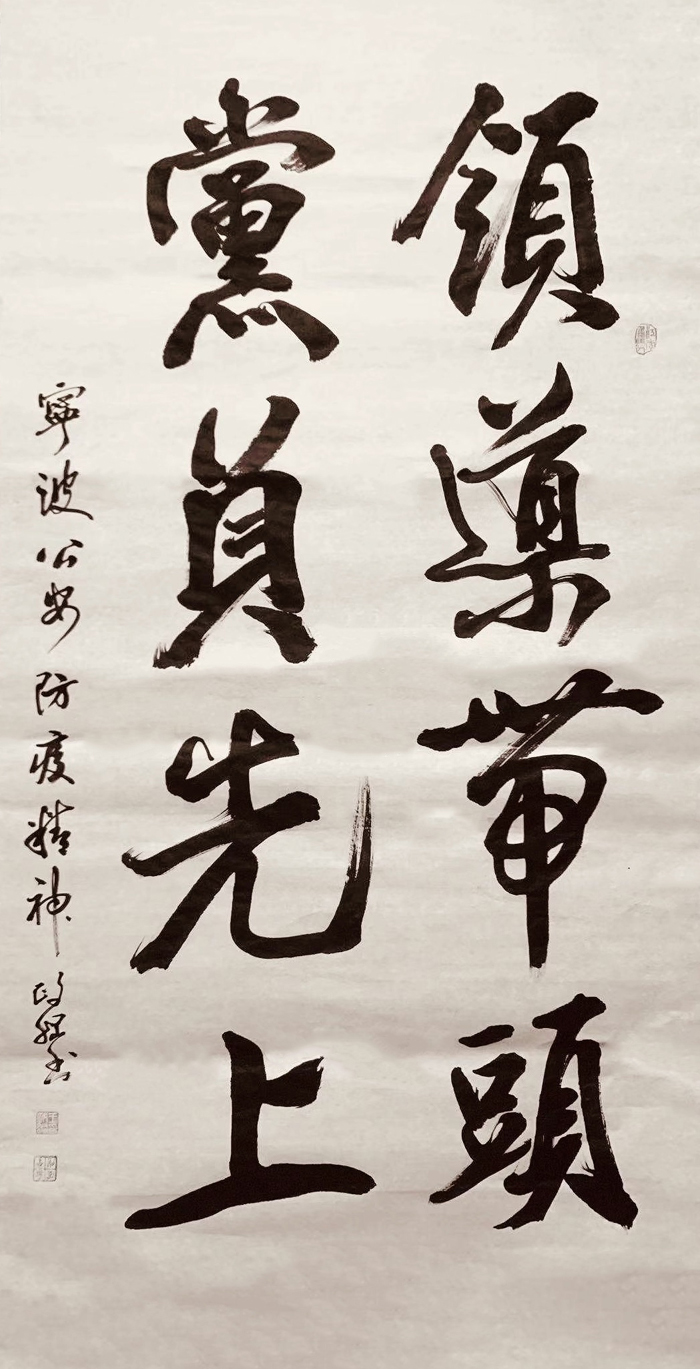 領導帶頭
黨員先上
寧波公安防疫精神